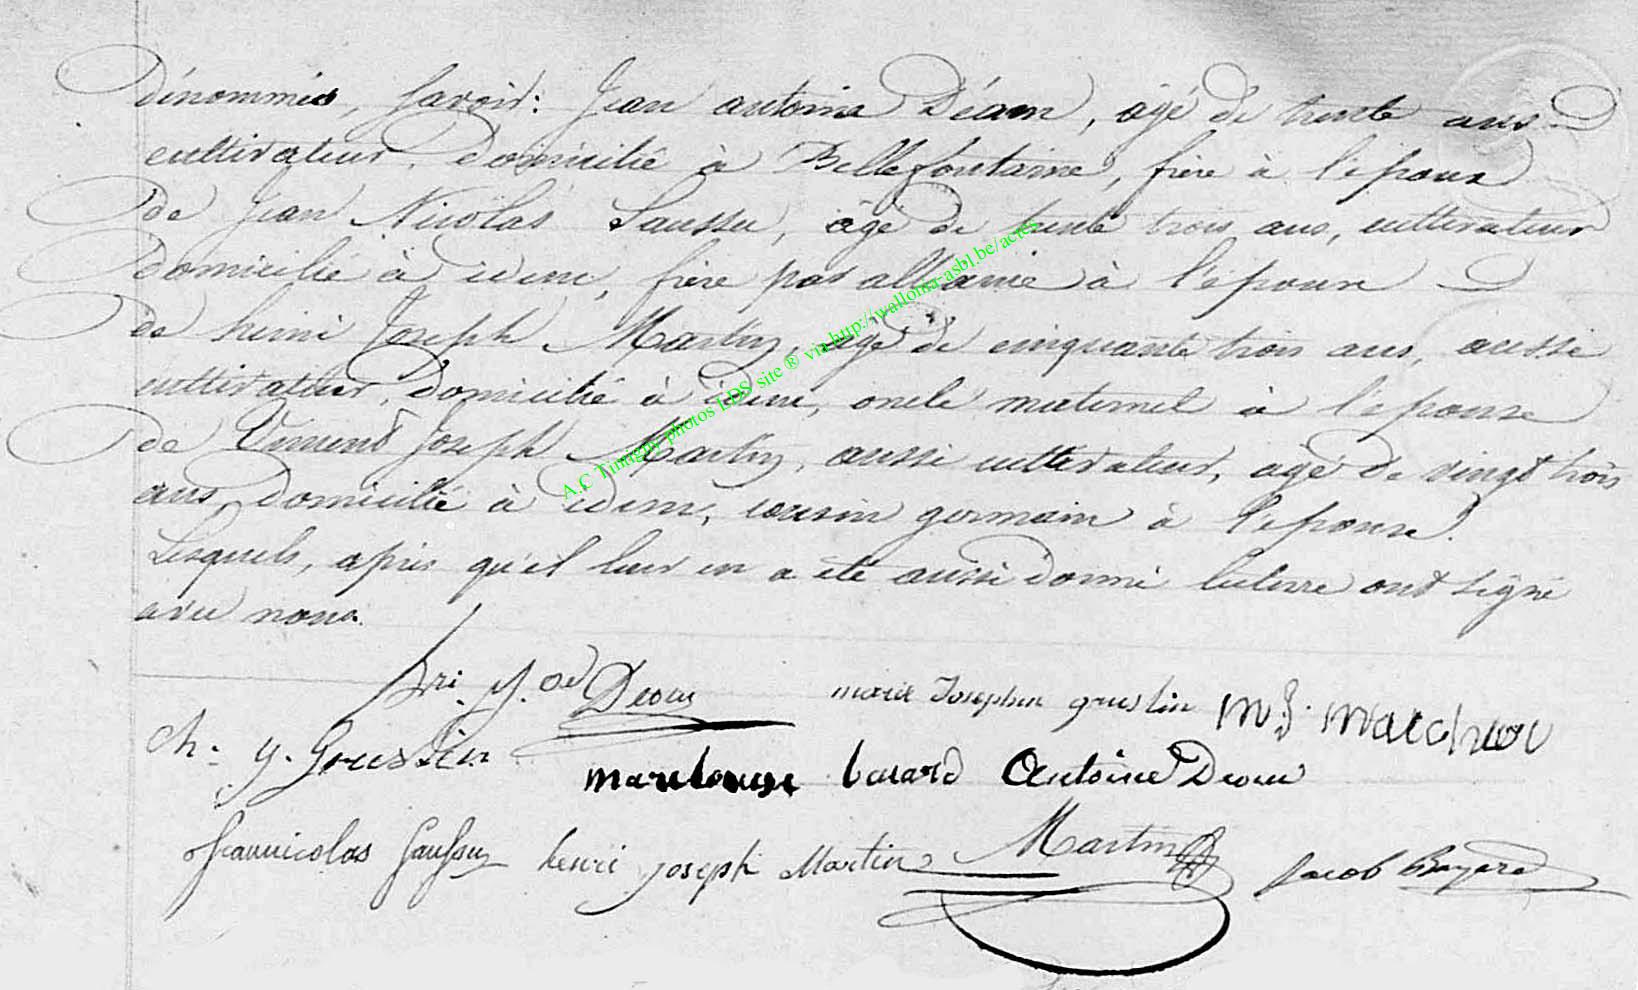 Dénommés, savoir: Jean antoine Déom, agé de trente ans
cultivateur, domicilié à Bellefontaine, frère à l'epoux
de Jean Nicolas Saussu, âgé de trente trois ans, cultivateur
domicilié à idem, frère par alliance à l'epouse
de henri Joseph Martin, âgé de cinquante trois ans, aussi
cultivateur, domicilié à idem, oncle maternel à l'epouse
de Vincent Joseph Martin, aussi cultivateur, agé de vingt trois
ans, domicilié à idem, cousin germain à l'epouse.
Lesquels, après qu'il leur en a été aussi donné lecture ont signé
avec nous.
A.C Tintigny photos LDS site ® via http://wallonia-asbl.be/actes
Deom marie Josephine gruslin M. J. marchal
ch: j. Gruslin
marelouise Antoine Deom
Jeannicolas Saussu henri joseph Martin Martin Jacob